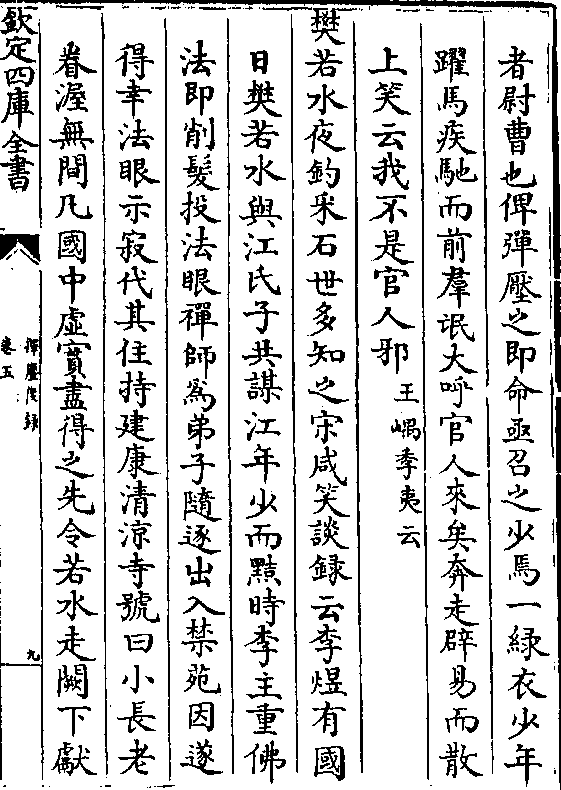 者尉曹也俾彈壓之即命亟召之少焉一緑衣少年
躍馬疾馳而前羣氓大呼官人來矣奔走辟易而散
上笑云我不是官人邪王嵎季夷云
樊若水夜釣采石世多知之宋咸笑談録云李煜有國
日樊若水與江氏子共謀江年少而黠時李主重佛
法即削髮投法眼禪師爲弟子隨逐出入禁苑因遂
得幸法眼示寂代其住持建康清涼寺號曰小長老
眷渥無間凡國中虛實盡得之先令若水走闕下獻
欽定四庫全書
揮麈後録
卷五
九